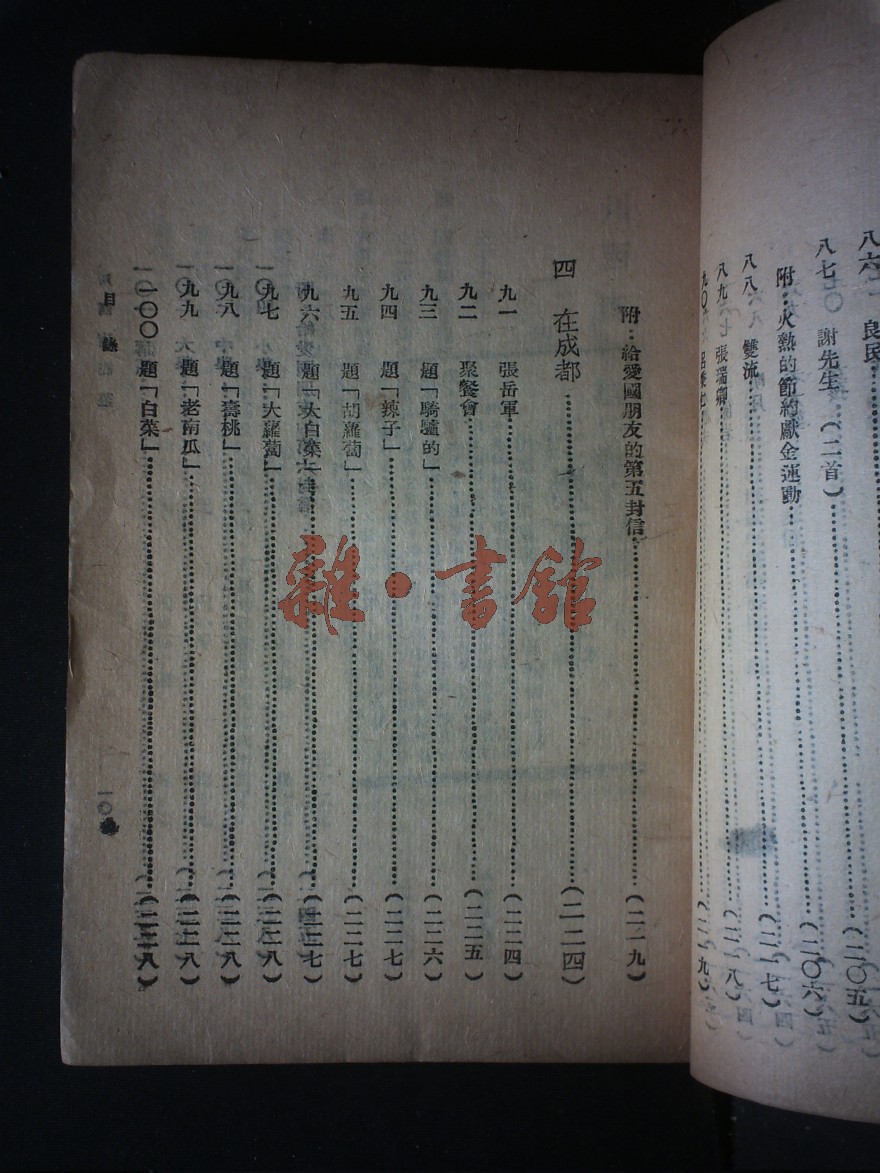 八六 良民……(二〇五)
八七 謝先生(二首)……(二〇六)
附：火熱的節約獻金運動……
八八 雙流……(二一七)
八九 張瑞卿……(二一八)
九〇……(二一九)
附：給愛國朋友的第五封信……(二一九)
四 在成都……(二二四)
九一 張岳軍……(二二四)
九二 聚餐會……(二二五)
九三 題「騎驢的」……(二二六)
九四 題「辣子」……(二二七)
九五 題「胡蘿蔔」……(二二七)
九六 題「大白菜」……(二二七)
九七 題「大蘿蔔」……(二二八)
九八 題「壽桃」……(二二八)
九九 題「老南瓜」……(二二八)
一〇〇 題「白菜」……(二二八)
目錄
一〇
雜·書館